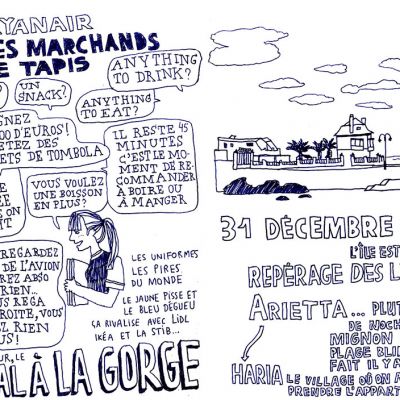 YANAIR
ES MARCHANDS
E TAPIS
ANYTHING
TO DRINK?
UN
SNACK?
ANYTHING
TO EAT?
GNEZ
00 D'EUROS!
ETEZ DES
ETS DE TOMBOLA
IL RESTE 45
MINUTES
C'EST LE MO-
MENT DE RE-
COMMANDER
À BOIRE OU
À MANGER
VOUS VOULEZ
UNE BOISSON
EN PLUS?
REGARDEZ
DE L'AVION
REZ ABSO
RIEN...
US REGA
DROITE, VOUS
EZ RIEN
US!
LES UNIFORMES
LES PIRES
DU MONDE
LE JAUNE PISSE ET
LE BLEU DÉGUEU
ÇA RIVALISE AVEC LIDL
IKÉA ET LA STIB...
UR, LE
AL À LA GORGE
31 DÉCEMBRE
L'ÎLE EST
REPÉRAGE DES L
ARIETTA... PLUT
DE NOCH
MIGNON
PLAGE BLIN
FAIT IL YA
HARIA
LE VILLAGE OÙ ON A
PRENDRE L'APPART